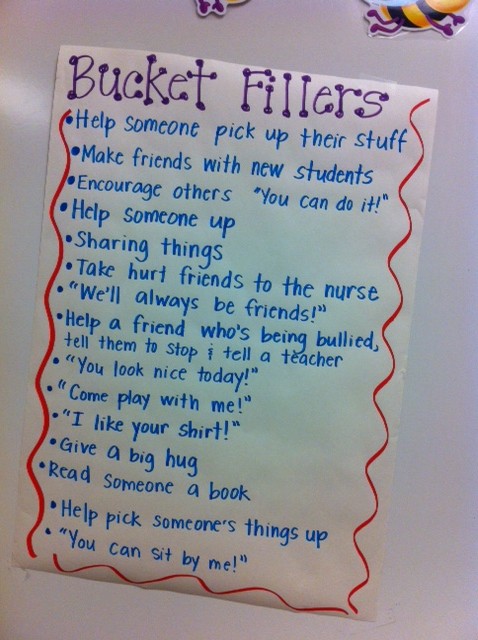 Bucket Fillers
•Help someone pick up their stuff
•Make friends with new students
•Encourage others "You can do it!"
•Help someone up
•Sharing things
•Take hurt friends to the nurse
•"We'll always be friends!"
•Help a friend who's being bullied,
tell them to stop & tell a teacher
•"You look nice today!"
•"Come play with me!"
•"I like your shirt!"
•Give a big hug
•Read someone a book
•Help pick someone's things up
•"You can sit by me!"